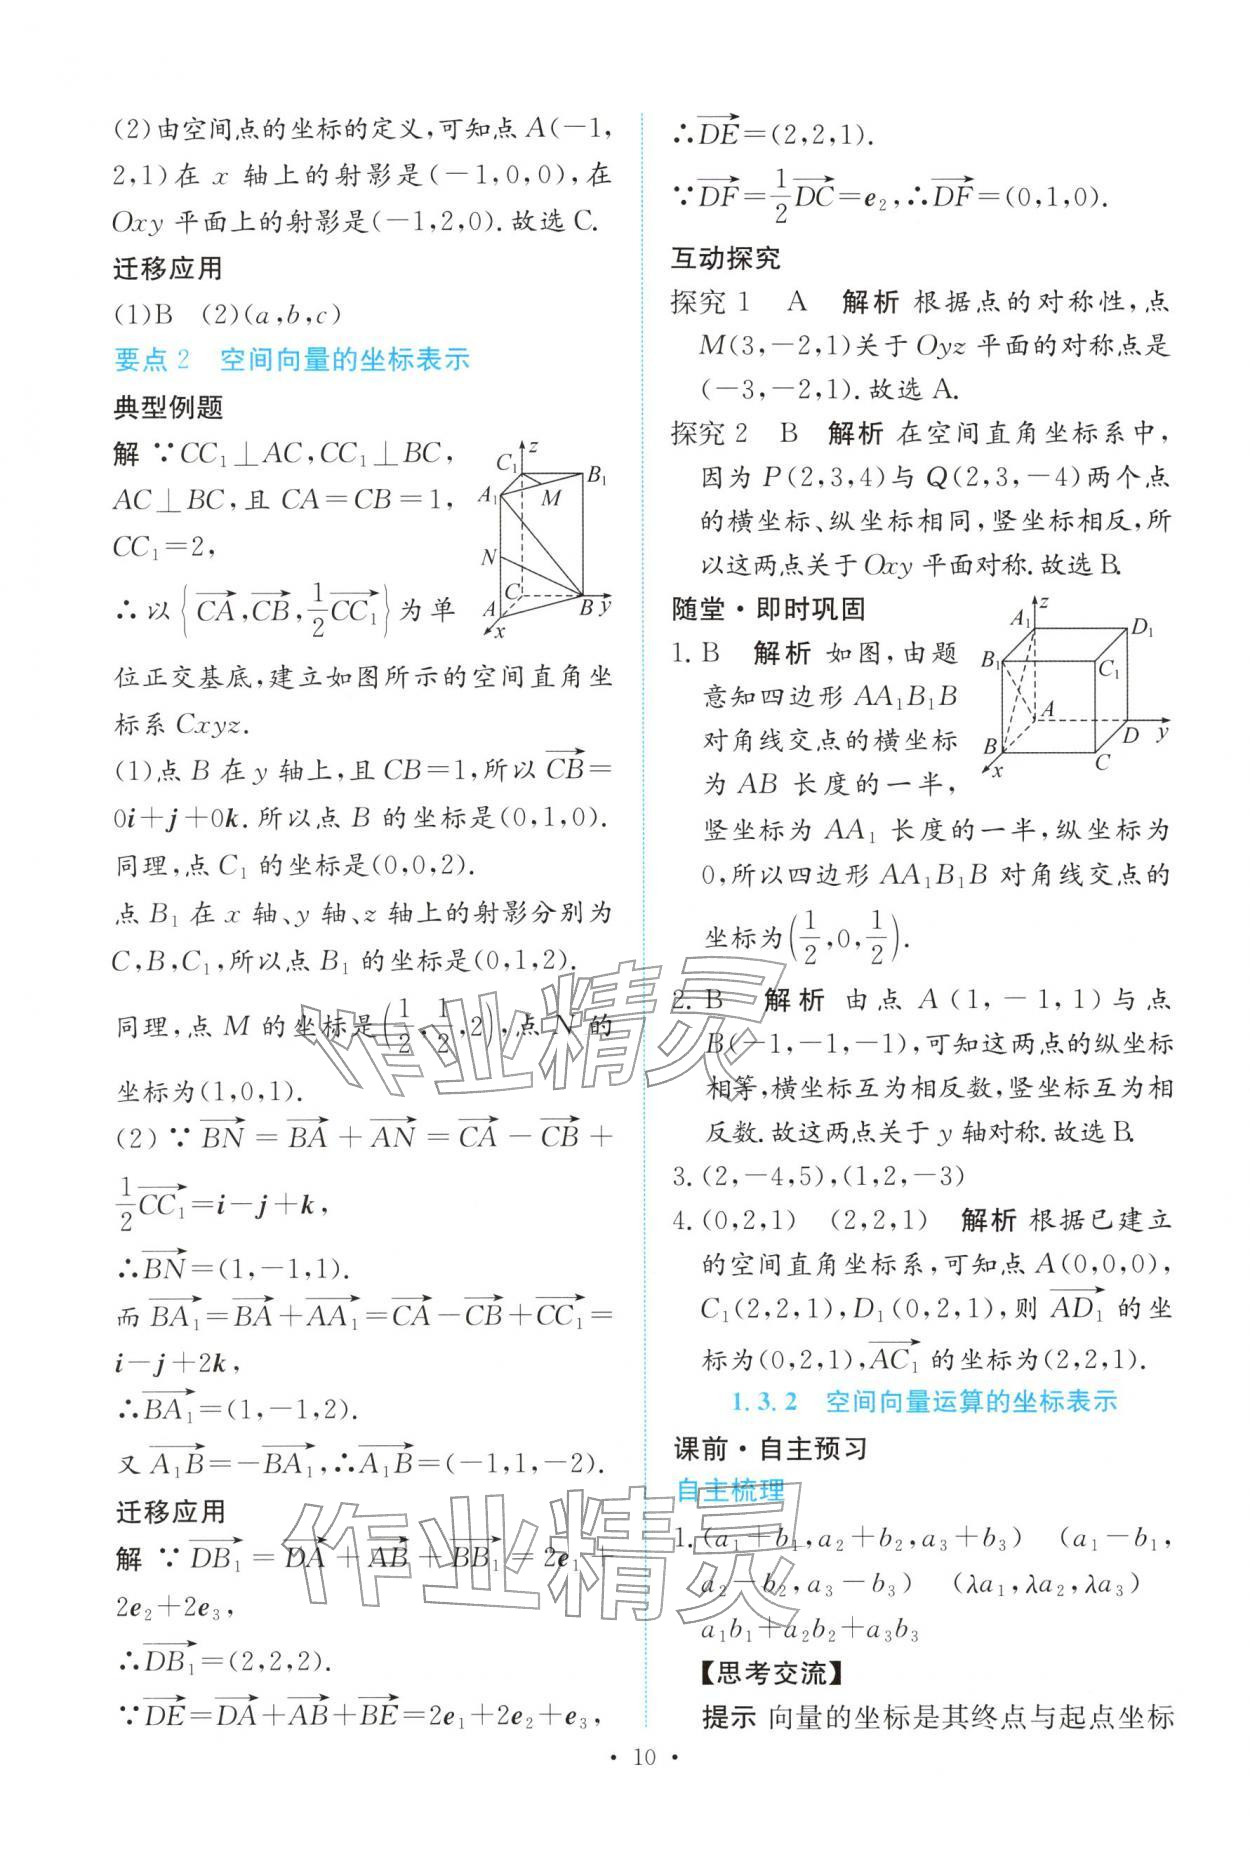 (2)由空间点的坐标的定义,可知点 A(－1,
2,1)在 x 轴上的射影是(－1,0,0),在
Oxy 平面上的射影是(－1,2,0).故选C.
迁移应用
(1)B (2)(a,b,c)
要点2 空间向量的坐标表示
典型例题
解 ∵CC₁⊥AC,CC₁⊥BC,
AC⊥BC,且 CA=CB=1,
CC₁=2,
∴以{\overrightarrow{CA},\overrightarrow{CB},\frac{1}{2}\overrightarrow{CC_1}}为单
z
C₁
B₁
A₁
M
N
C
A
B y
x
位正交基底,建立如图所示的空间直角坐
标系 Cxyz.
(1)点 B 在 y 轴上,且 CB=1,所以 \overrightarrow{CB}=
0i+j+0k.所以点 B 的坐标是(0,1,0).
同理,点 C₁ 的坐标是(0,0,2).
点 B₁ 在 x 轴、y 轴、z 轴上的射影分别为
C,B,C₁,所以点 B₁ 的坐标是(0,1,2).
同理,点 M 的坐标是(\frac{1}{2},\frac{1}{2},2),点 N 的
坐标为(1,0,1).
(2)∵\overrightarrow{BN}=\overrightarrow{BA}+\overrightarrow{AN}=\overrightarrow{CA}－\overrightarrow{CB}+
\frac{1}{2}\overrightarrow{CC_1}=i－j+k,
∴\overrightarrow{BN}=(1,－1,1).
而\overrightarrow{BA_1}=\overrightarrow{BA}+\overrightarrow{AA_1}=\overrightarrow{CA}－\overrightarrow{CB}+\overrightarrow{CC_1}=
i－j+2k,
∴\overrightarrow{BA_1}=(1,－1,2).
又\overrightarrow{A_1B}=－\overrightarrow{BA_1},∴\overrightarrow{A_1B}=(－1,1,－2).
迁移应用
解 ∵\overrightarrow{DB_1}=\overrightarrow{DA}+\overrightarrow{AB}+\overrightarrow{BB_1}=2e₁+
2e₂+2e₃,
∴\overrightarrow{DB_1}=(2,2,2).
∵\overrightarrow{DE}=\overrightarrow{DA}+\overrightarrow{AB}+\overrightarrow{BE}=2e₁+2e₂+e₃,
∴\overrightarrow{DE}=(2,2,1).
∵\overrightarrow{DF}=\frac{1}{2}\overrightarrow{DC}=e₂,∴\overrightarrow{DF}=(0,1,0).
互动探究
探究1 A 解析 根据点的对称性,点
M(3,－2,1)关于 Oyz 平面的对称点是
(－3,－2,1).故选 A.
探究2 B 解析 在空间直角坐标系中,
因为 P(2,3,4)与 Q(2,3,－4)两个点
的横坐标、纵坐标相同,竖坐标相反,所
以这两点关于 Oxy 平面对称.故选 B.
随堂·即时巩固
1.B 解析 如图,由题
意知四边形 AA₁B₁B
对角线交点的横坐标
为 AB 长度的一半,
z
A₁
D₁
B₁
C₁
A
B
D y
C
x
竖坐标为 AA₁ 长度的一半,纵坐标为
0,所以四边形 AA₁B₁B 对角线交点的
坐标为(\frac{1}{2},0,\frac{1}{2}).
2.B 解析 由点 A(1,－1,1)与点
B(－1,－1,－1),可知这两点的纵坐标
相等,横坐标互为相反数,竖坐标互为相
反数.故这两点关于 y 轴对称.故选 B.
3.(2,－4,5),(1,2,－3)
4.(0,2,1) (2,2,1) 解析 根据已建立
的空间直角坐标系,可知点 A(0,0,0),
C₁(2,2,1),D₁(0,2,1),则 \overrightarrow{AD_1} 的坐
标为(0,2,1),\overrightarrow{AC_1} 的坐标为(2,2,1).
1.3.2 空间向量运算的坐标表示
课前·自主预习
自主梳理
1.(a₁+b₁,a₂+b₂,a₃+b₃) (a₁－b₁,
a₂－b₂,a₃－b₃) (λa₁,λa₂,λa₃)
a₁b₁+a₂b₂+a₃b₃
【思考交流】
提示 向量的坐标是其终点与起点坐标
·10·
作业精灵
作业精灵